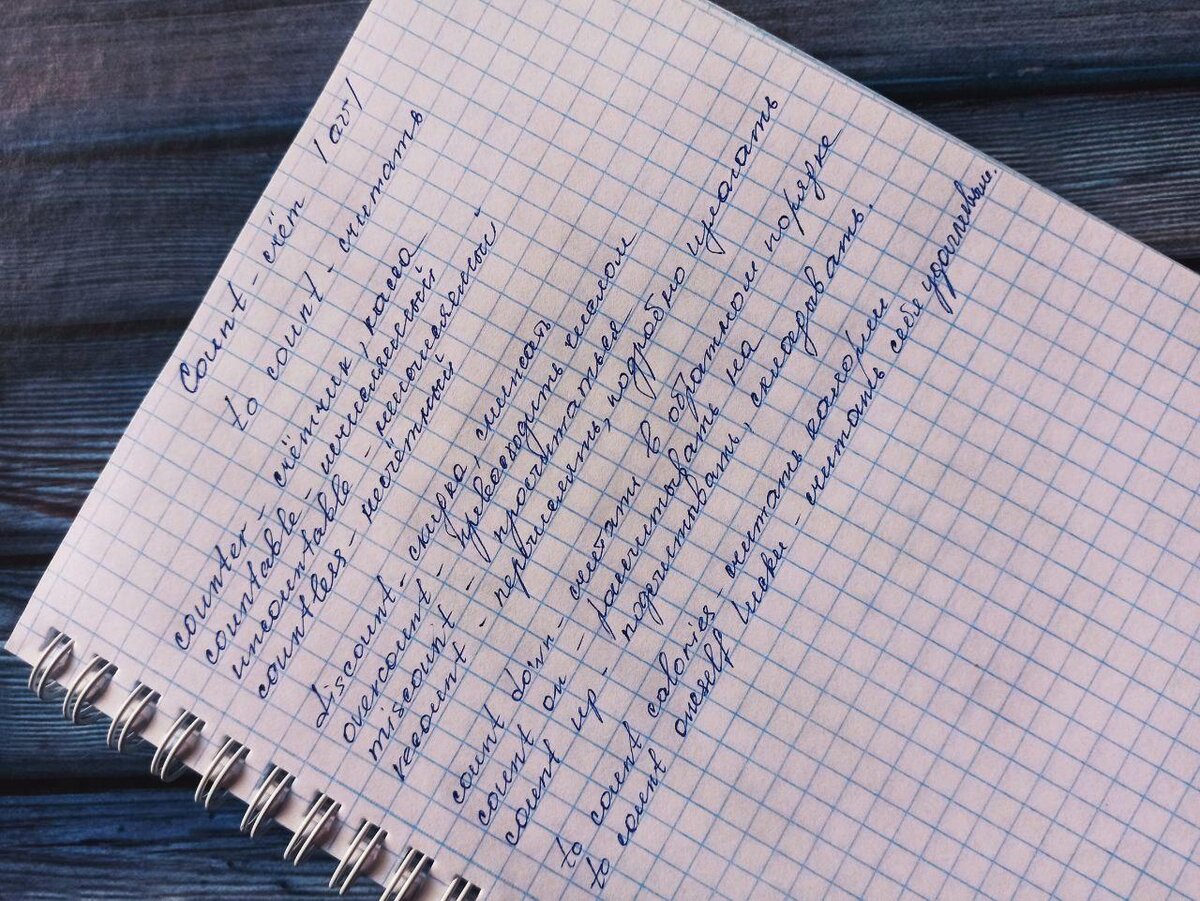 Count - счёт /aʊ/
to count - считать
counter - счётчик, касса
countable - исчисляемый
uncountable - неисчисляемый
countless - несчётный
discount - скидка, снижать
overcount - превосходить числом
miscount - просчитаться
recount - перечислять, подробно излагать
count down - считать в обратном порядке
count on - рассчитывать на
count up - подсчитывать, складывать.
to count calories - считать калории
to count oneself lucky - считать себя удачливым.